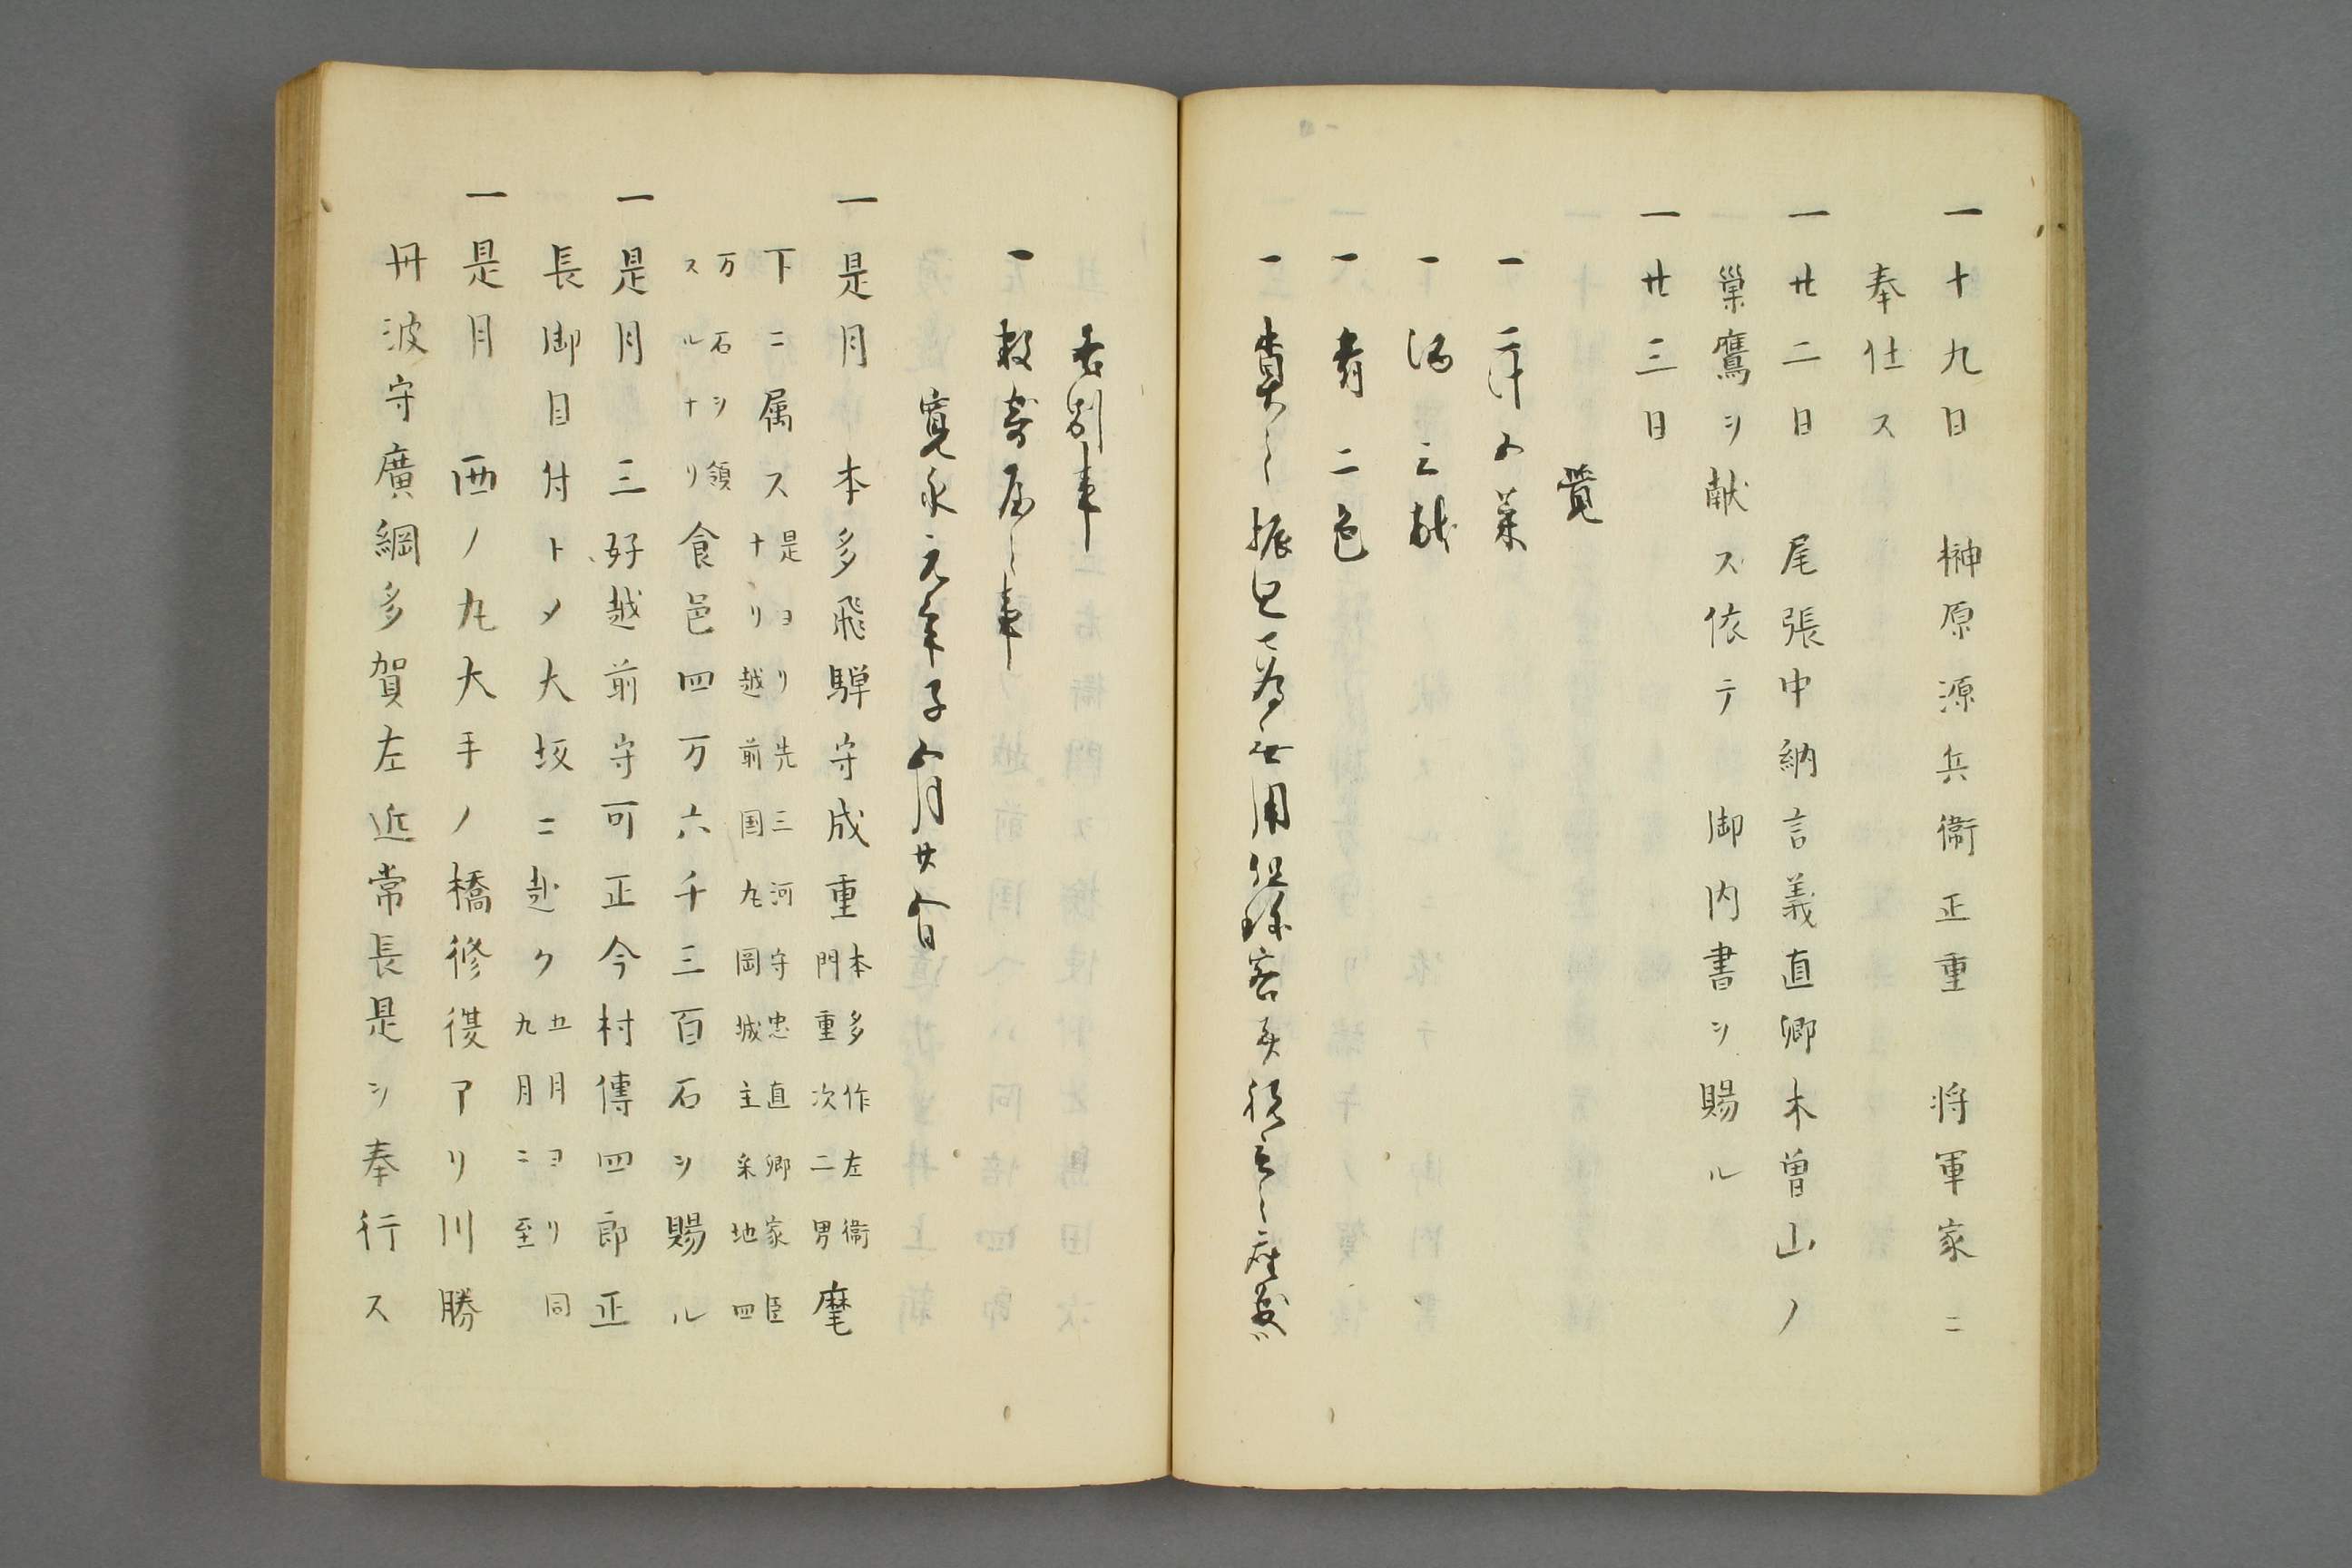 一十九日　榊原源兵衛正重　将軍家ニ
奉仕ス
一廿二日　尾張中納言義直卿木曽山ノ
巣鷹ヲ献ス依テ　御内書ヲ賜ル
一廿三日
覚
一二汁五菜
一酒三献
一肴二色
一菓子
右別事
一数寄屋之事
寛永元年子八月廿八日
一是月　本多飛騨守成重本多作左衛門重次二男麾
下ニ属ス是ヨリ先三河守忠直卿家臣ナリ越前国丸岡城主采地四
万石ヲ領スルナリ食邑四万六千三百石ヲ賜ル
一是月　三好越前守可正今村傳四郎正
長御目付トメ大坂ニ赴ク五月ヨリ同九月ニ至
一是月　西ノ丸大手ノ橋修復アリ川勝
丹波守廣綱多賀左近常長是ヲ奉行ス